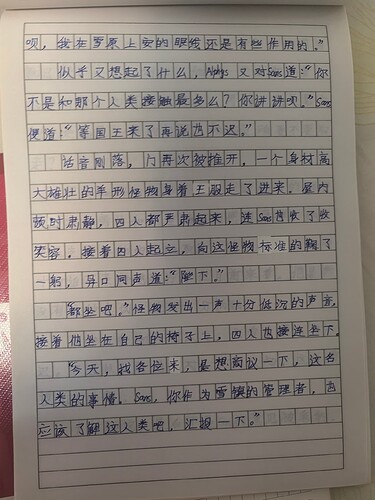 呗，我在雪原上安的眼线还是有些作用的。”
似乎又想起了什么，Alphys又对Sans道：“你
不是和那个人类接触最多么？你讲讲呗。”Sans
便道：“等国王来了再说也不迟。”
话音刚落，门再次被推开，一个身材高
大雄壮的羊形怪物身着王服走了进来，屋内
顿时肃静，四人都严肃起来，连Sans也收了收
笑容，接着四人起立，向这怪物标准的鞠了
一躬，异口同声道：“陛下。”
“都坐吧。”怪物发出一声十分低沉的声音，
接着他坐在自己的椅子上，四人也接连坐下。
“今天，找各位来，是想商议一下，这名
人类的事情。Sans，你作为雪镇的管理者，也
应该了解这人类吧，汇报一下。”